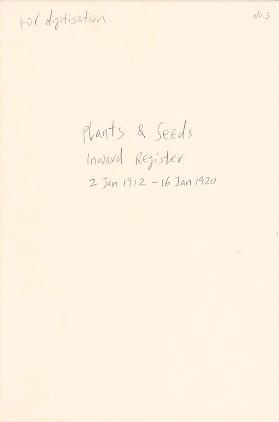 For digitisation
No. 3
Plants & Seeds
Inward Register
2 Jan 1912 - 16 Jan 1920